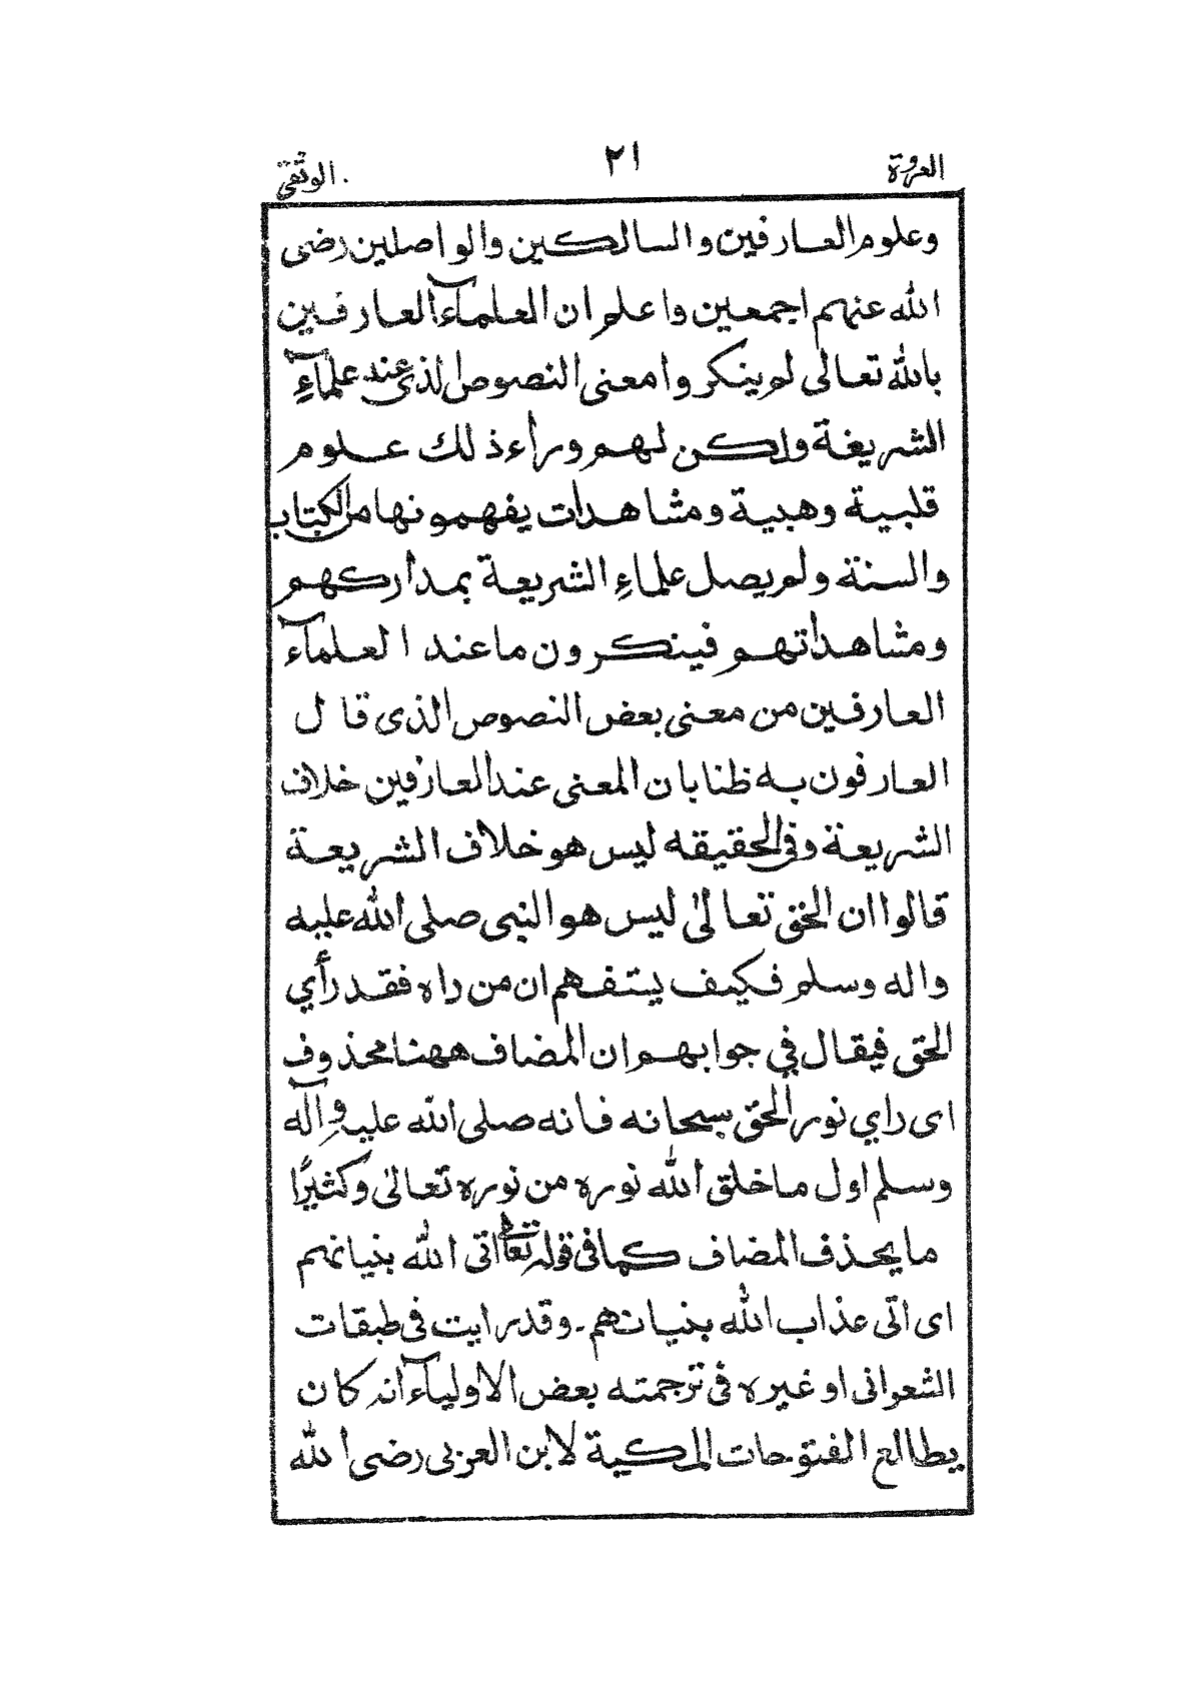 العروة ٢١ الوثقى
وعلوم العارفين والسالكين والواصلين رضى
الله عنهم اجمعين واعلم ان العلمآء العارفين
بالله تعالى لم ينكروا معنى النصوص الذى عند علمآءِ
الشريغة ولكن لهم وراء ذلك علوم
قلبية وهبية ومشاهدات يفهمونها من الكتاب
والسنة ولم يصل علماءِ الشريعة بمداركهم
ومشاهداتهم فينكرون ما عند العلمآء
العارفين من معنى بعض النصوص الذى قال
العارفون به ظنا بان المعنى عند العارفين خلاف
الشريعة وفى الحقيقه ليس هو خلاف الشريعة
قالوا ان الحق تعالىٰ ليس هو النبى صلى الله عليه
واله وسلم فكيف يتفهم ان من راه فقد رأي
الحق فيقال في جوابهم ان المضاف ههنا محذوف
اى راي نور الحق سبحانه فانه صلى الله عليه وآله
وسلم اول ما خلق الله نوره من نوره تعالىٰ وكثيرًا
ما يحذف المضاف كما فى قوله تعالى اتى الله بنيانهم
اى اتى عذاب الله بنيانهم۔ وقد رايت فى طبقات
الشعرانى او غيره فى ترجمته بعض الاوليآء انه كان
يطالع الفتوحات المكية لابن العربى رضى الله